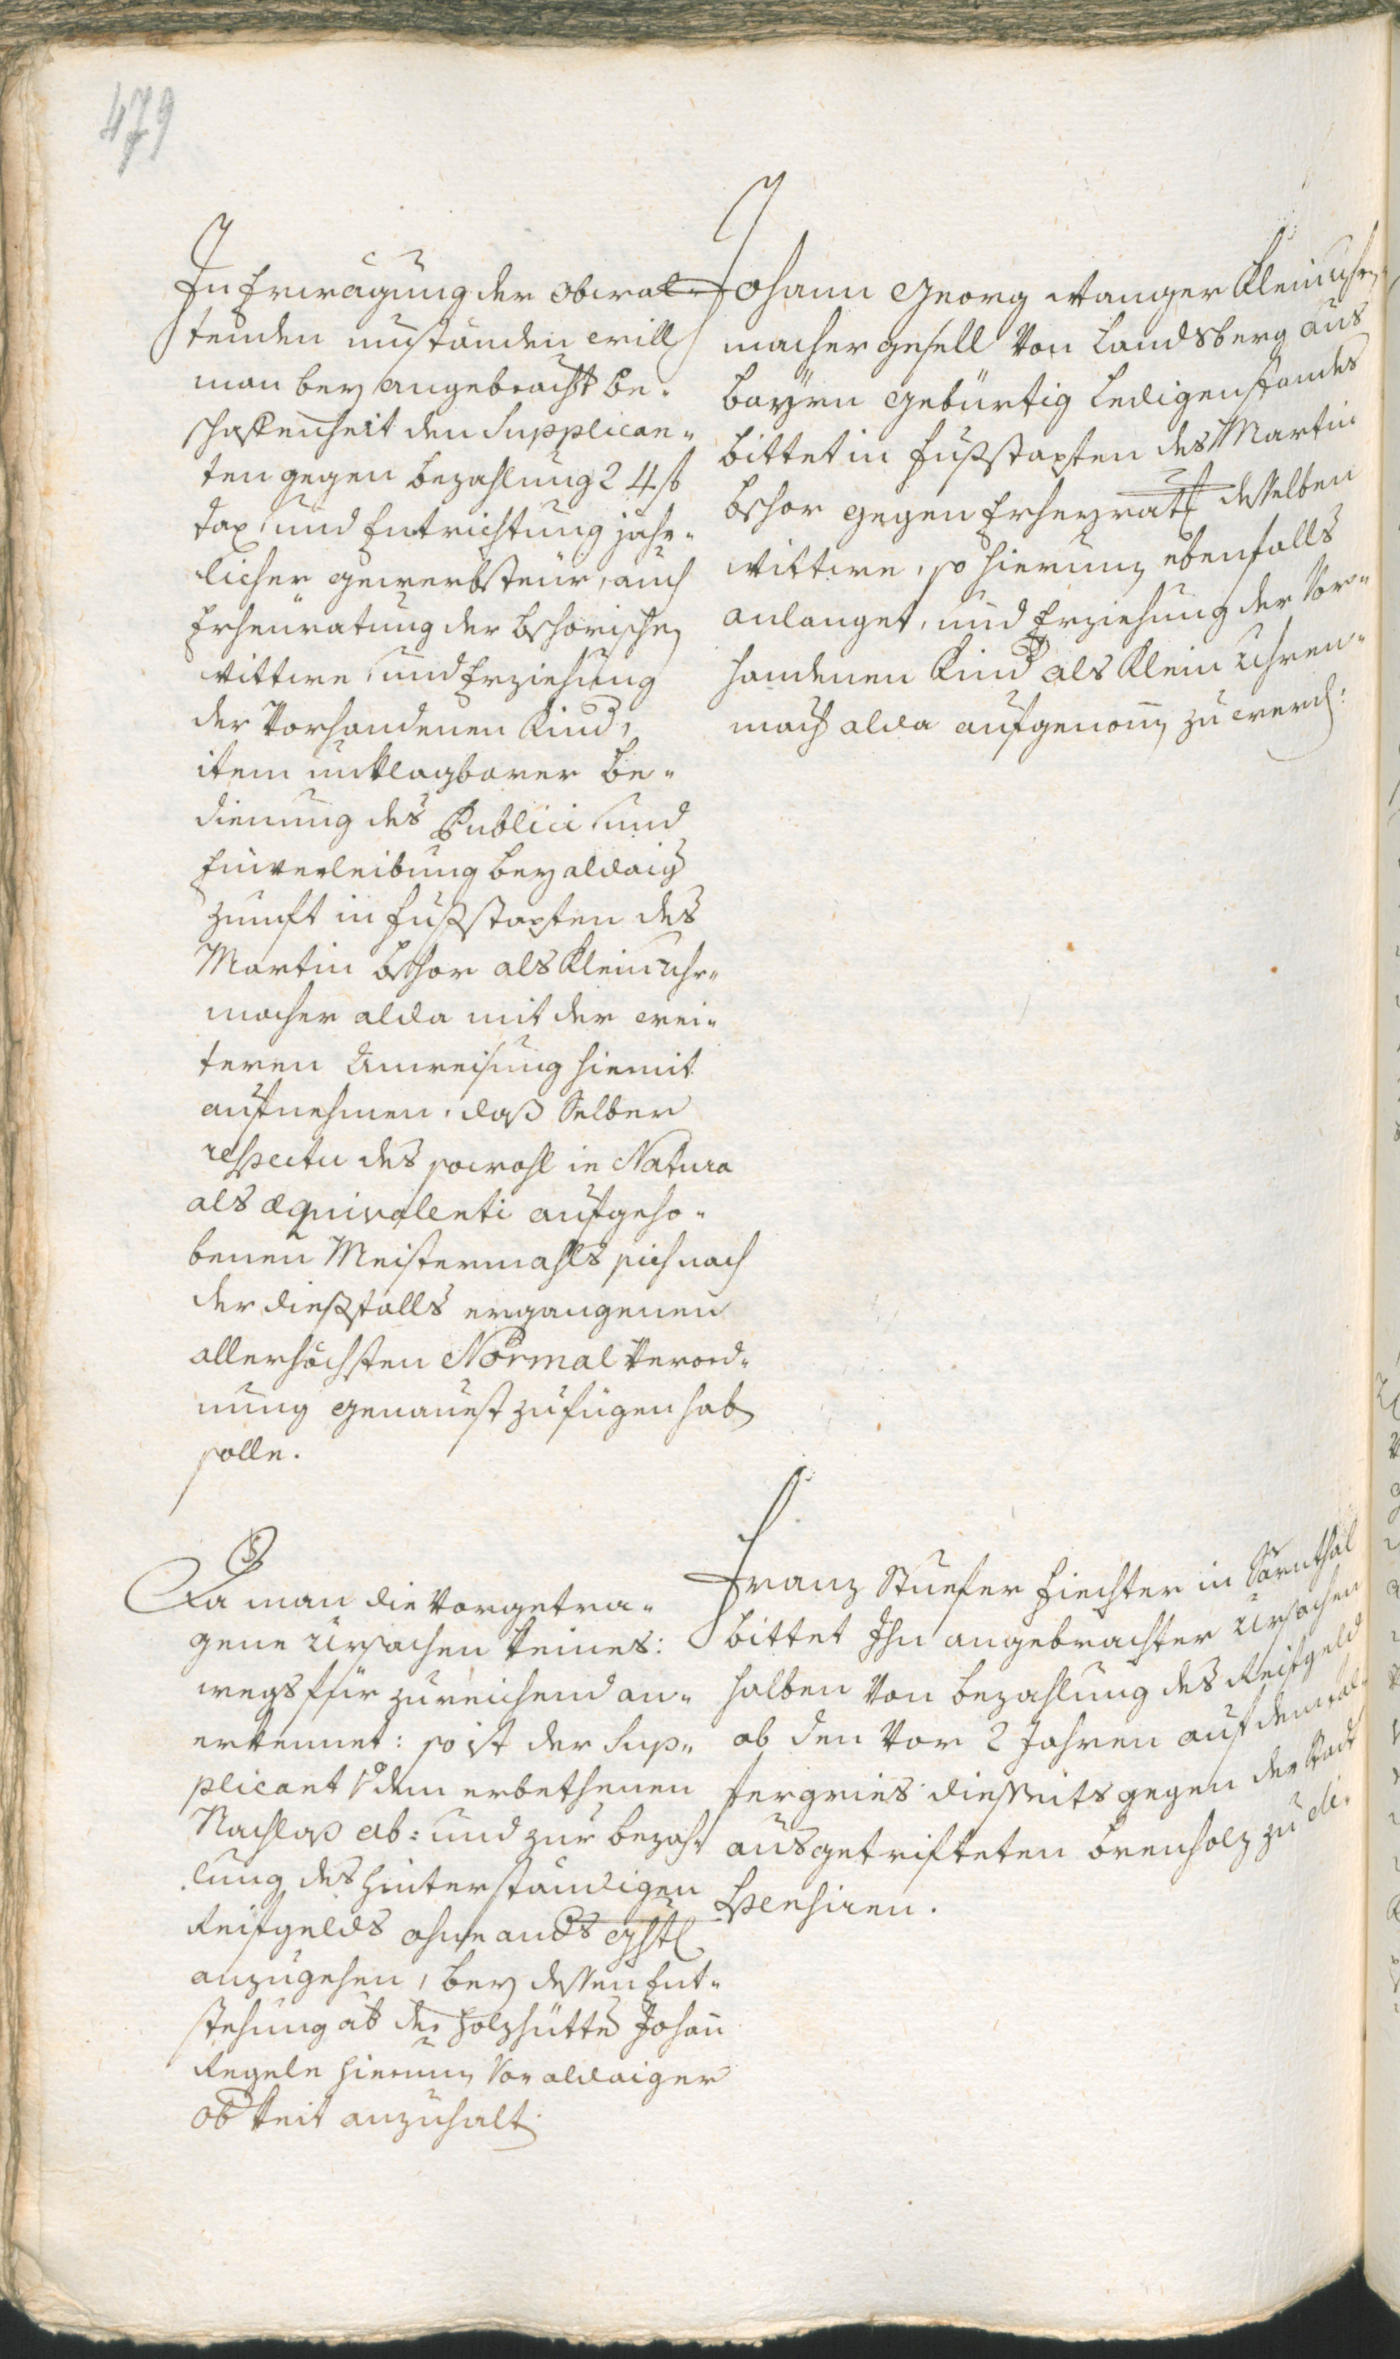 479
In Erwägung der obwal-
tenden umständen will
man bey angebracht be-
schaffenheit den Supplican-
ten gegen bezahlung 24 f
tax, und Entrichtung jähr-
licher gewerbsteür, auch
Erheüratung der Bschorischen
wittwe, und Erziehung
der Vorhandenen Kind,
item unklagbarer be-
dienung des Publici und
Einverleibung bey aldaig
zunft in fußstapfen des
Martin Bschor als Kleinuhr-
macher alda mit der wei-
teren Anweisung hiemit
aufnehmen, daß Selber
respectu des sowohl in Natura
als æquivalenti aufgeho-
benen Meistermahls sich nach
der dießfalls ergangenen
allerhöchsten Normal Verord-
nung genauest zu fügen hab
solle.
Johann Georg Wanger Kleinuhr-
macher gesell Von Landsberg aus
Bayrn gebürtig Ledigenstandes
bittet in fußstapfen des Martin
Bschor gegen Erheyrat desselben
wittwe, so hierum ebenfalls
anlanget, und Erziehung der Vor-
handenen Kind als Klein Uhren-
mach alda aufgenom zu werd:
Da man die Vorgetra-
gene Ursachen keines:
wegs für zureichend an-
erkennet: so ist der Sup-
plicant Von dem erbethenen
Nachlaß ab: und zur bezah-
lung des hinterständigen
Reifgelds ohne anders
anzugehen, bey dessen Ent-
stehung ab der Holzhütte Johann
Regele hierum Vor aldaiger
Obkeit anzuhalt.
Franz Stuefer Fiechter in Sarnthal
bittet Ihn angebrachter Ursachen
halben Von bezahlung des Reifgeld
ab den Vor 2 Jahren auf dem tal-
fergries diesseits gegen der Stadt
ausgetrifteten brenholz zu di-
spensiren.